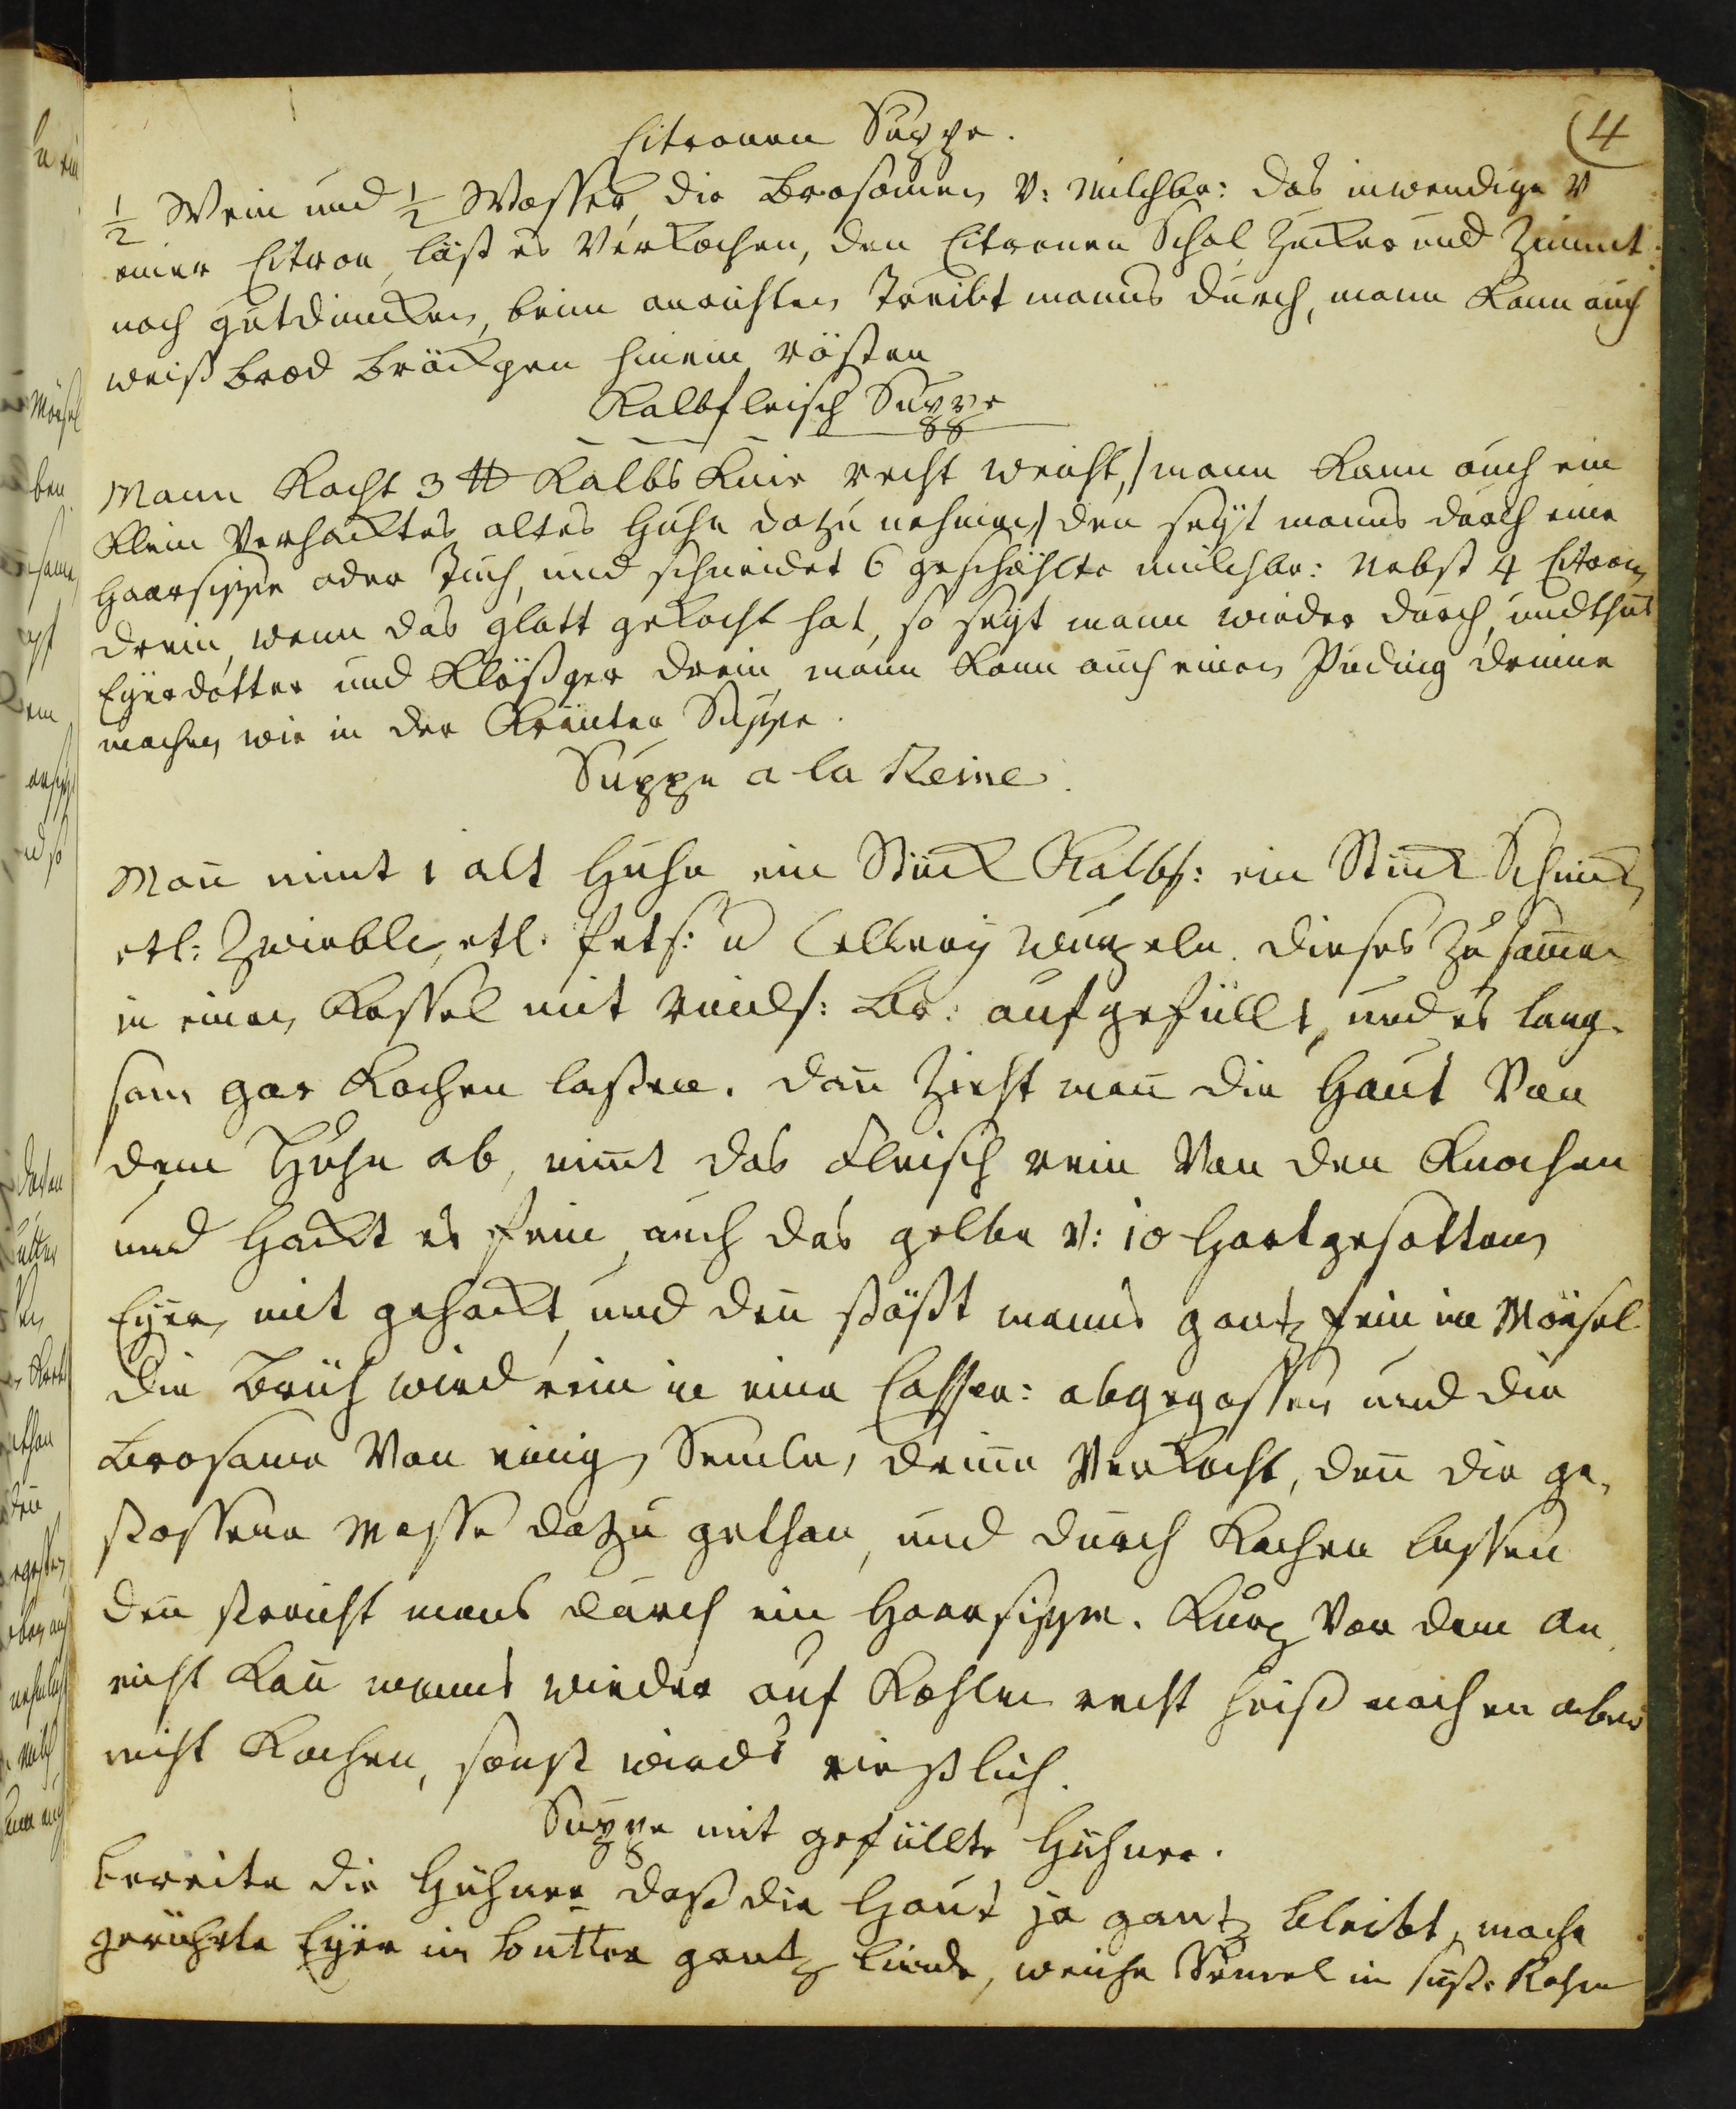 4
Citronen Suppe.
½ Wein und ½ Wasser, die Brosamen v: Milchbr: das inwendige v
einer Citron, läst es Verkochen, den Citronen Schal Zucker und Zimmt
nach gutdüncken, beim anrichten treibt manns durch, mann kann auch
weiß brod bröckgen hinein rösten
Kalbfleisch Suppe
Mann Kocht 3 ℔ Kalbs Knie recht weich, / mann kann auch ein
klein Verhacktes altes Huhn dazu nehmen / den seyt manns durch eine
Haarsippe oder Tuch, und schneidet 6 geschählte milchbr: Nebst 4 Citron
drein, wenn das glatt gekocht hat, so seyt mann wieder durch, und thut
Eyerdotter und Klößger drein, mann kann auch einen Puding drinne
machen wie in der Kräuter Suppe.
Suppe a la Reine.
Man nimt 1 alt Huhn ein Stück Kalbf: ein Stück Schinck
etl: Zwieble, etl. Pets: u Cellery wurzeln. dieses Zusamen
in einen Kessel mit rindf: Br: aufgefüllt, und es lang-
sam gar Kochen laßen. dan Zieht man die Haut Von
dem Huhn ab, nimt das Fleisch rein Von den Knochen
und Hackt es fein, auch das gelbe v: 10 Hartgesotten
Eyer, mit gehackt, und den stößt manns gantz fein im Mörsel
die Brüh wird rein in eine Casser: abgegossen und die
Brosame Von einig Semle, drinne Verkocht, den die ge-
stossene Masse dazu gethan, und durch Kochen lassen
den streicht mans durch ein Haarsippe. Kurz Vor dem An
richt kan manns wieder auf Kohlen recht heiß machen aber
nicht Kochen, sonst wirds rießlich.
Suppe mit gefüllte Hühner.
Bereite die Hühner daß die Haut ja gantz bleibt, mache
gerührte Eyer in Butter gantz linde, weiche Semel in süße Rahm